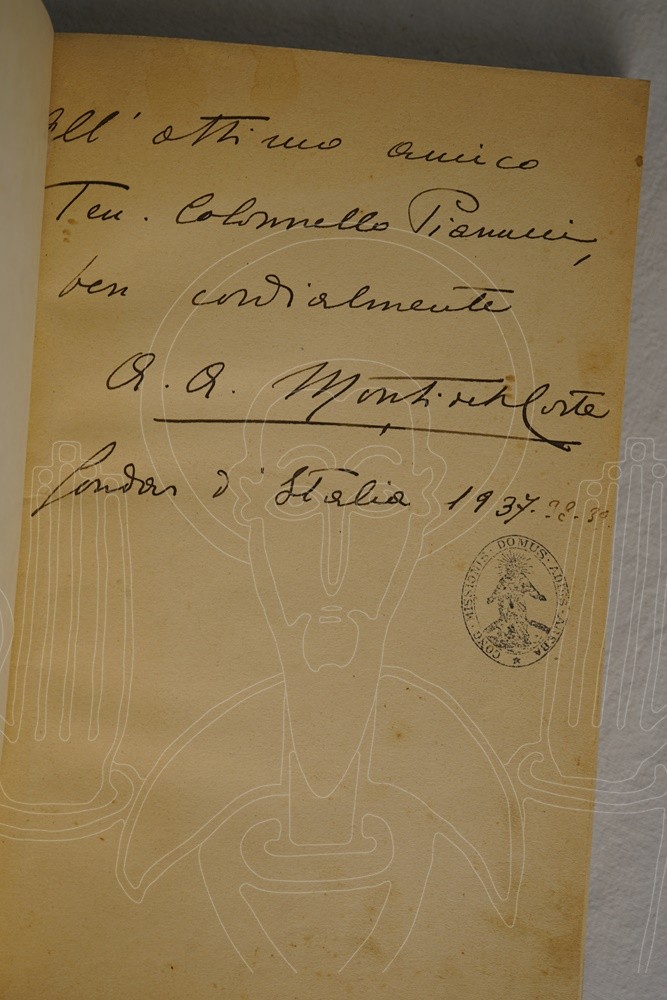 All' ottimo amico
Ten. Colonnello Pianucci,
ben cordialmente
A. A. Monti della Corte
Gondar d'Italia 1937-38-39.
CONG · MISSIONIS · DOMUS · ADDIS · ABEBA